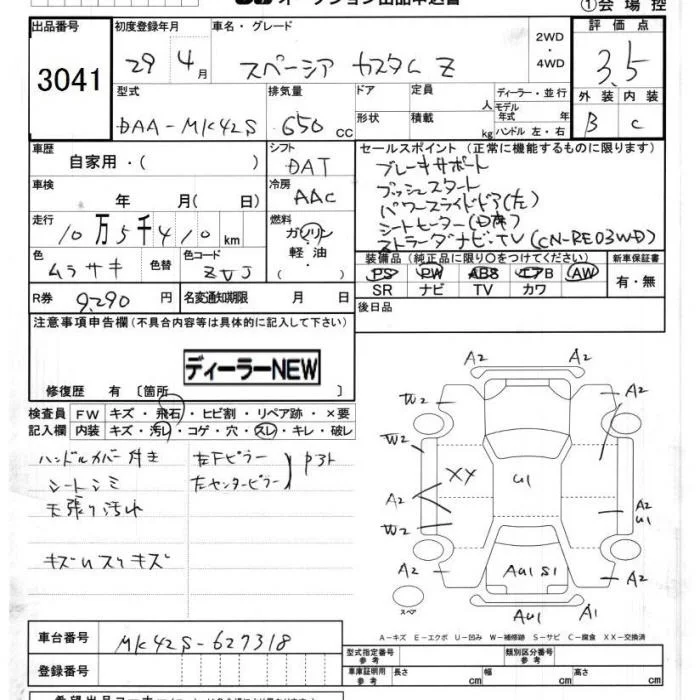 オークション出品申込書
①会場控
出品番号 初度登録年月 車名・グレード 2WD・4WD 評価点
3041 29 4月 スペーシア カスタム Z 3.5
型式 排気量 ドア 定員 人 ディーラー・並行 外装 内装
モデル年式 年
DAA-MK42S 650cc 形状 積載 kg ハンドル 左・右 B C
車歴 シフト セールスポイント (正常に機能するものに限ります)
自家用・( ) DAT ブレーキサポート
車検 冷房 プッシュスタート
年 月(日) AAC パワースライドドア(左)
走行 燃料 シートヒーター(D席)
10万5千410km ガソリン ストラーダナビ・TV (CN-RE03WD)
軽油
・( )
色 色替 色コード 装備品 (純正品に限り○をつけてください) 新車保証書
ムラサキ ZVJ PS PW ABS エアB AW 有・無
SR ナビ TV カワ
R券 9,290円 名変通知期限 月 日 後日品
注意事項申告欄 (不具合内容等は具体的に記入して下さい)
ディーラーNEW
修復歴 有 〔箇所 〕
検査員 FW キズ・飛石・ヒビ割・リペア跡・×要
記入欄 内装 キズ・汚レ・コゲ・穴・スレ・キレ・破レ
ハンドルカバー付き 左Fピラー
シートシミ 左センターピラー
天張り汚れ
キズUスリキズ
A2 A2
W2 A2
W2
XX U1
A2 A2
U1
W2
A2 AU1 S1 A2
スペア AU1 A1
A-キズ E-エクボ U-凹み W-補修跡 S-サビ C-腐食 XX-交換済
車台番号 MK42S-627318
型式指定番号 参考 類別区分番号 参考
登録番号 車庫証明用 参考 長さ cm 幅 cm 高さ cm